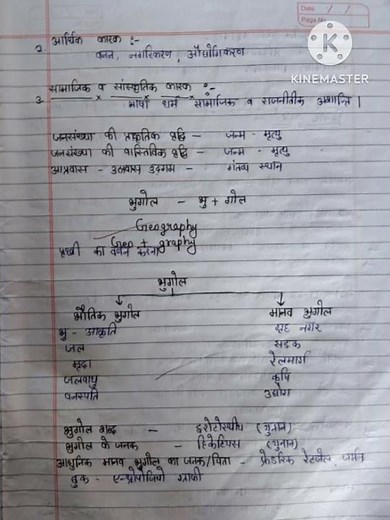 Date
Page No
KINEMASTER
2. आर्थिक कारक :-
खनन, नगरिकरण, औद्योगिकरण
3. सामाजिक व सांस्कृतिक कारक :-
भाषा धर्म सामाजिक व राजनीतीक अशान्ति।
जनसंख्या की प्राकृतिक वृद्धि - जन्म - मृत्यु
जनसंख्या की वास्तिविक वृद्धि - जन्म - मृत्यु
आप्रवास - उत्प्रवास उद्गम - गंतव्य स्थान
भुगोल - भु + गोल
Geography
Geo + graphy
पृथ्वी का वर्णन करना
भुगोल
भौतिक भुगोल मानव भुगोल
भु - आकृति गृह नगर
जल सडक
मृदा रेलमार्ग
जलवायु कृषि
वनस्पति उद्योग
भुगोल शब्द - इरेटोस्थीज (युनान)
भुगोल के जनक - हिकेटियस (युनान)
आधुनिक मानव भुगोल का जनक/पिता - फ्रेडरिक रेटजेल
बुक - एन्थ्रोपोजियो ग्राफी